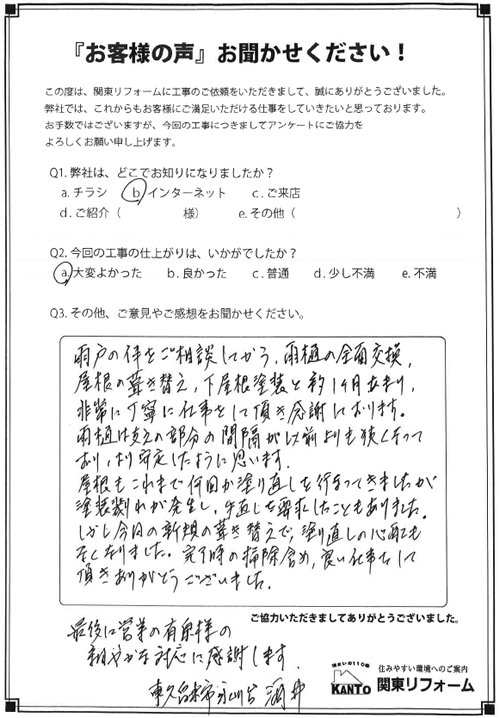 『お客様の声』お聞かせください！
この度は、関東リフォームに工事のご依頼をいただきまして、誠にありがとうございました。
弊社では、これからもお客様にご満足いただける仕事をしていきたいと思っております。
お手数ではございますが、今回の工事につきましてアンケートにご協力を
よろしくお願い申し上げます。
Q1. 弊社は、どこでお知りになりましたか？
a. チラシ b. インターネット c. ご来店
d. ご紹介（ 様） e. その他（ ）
Q2. 今回の工事の仕上がりは、いかがでしたか？
a. 大変よかった b. 良かった c. 普通 d. 少し不満 e. 不満
Q3. その他、ご意見やご感想をお聞かせください。
雨戸の件をご相談してから、雨樋の全面交換、
屋根の葺き替え、下屋根塗装と約1ヶ月あまり、
非常に丁寧に仕事をして頂き感謝しております。
雨樋は支えの部分の間隔が以前よりも狭くなって
おり、より安定したように思います。
屋根もこれまで何回か塗り直しを行なってきましたが
塗装割れが発生し、手直しを要求したこともありました。
しかし今回の新規の葺き替えで、塗り直しの心配も
なくなりました。完了時の掃除含め、良い仕事をして
頂きありがとうございました。
ご協力いただきましてありがとうございました。
最後に営業の有泉様の
和やかな対応に感謝します。
東久留米市 酒井
住まいの110番
KANTO
住みやすい環境へのご案内
関東リフォーム